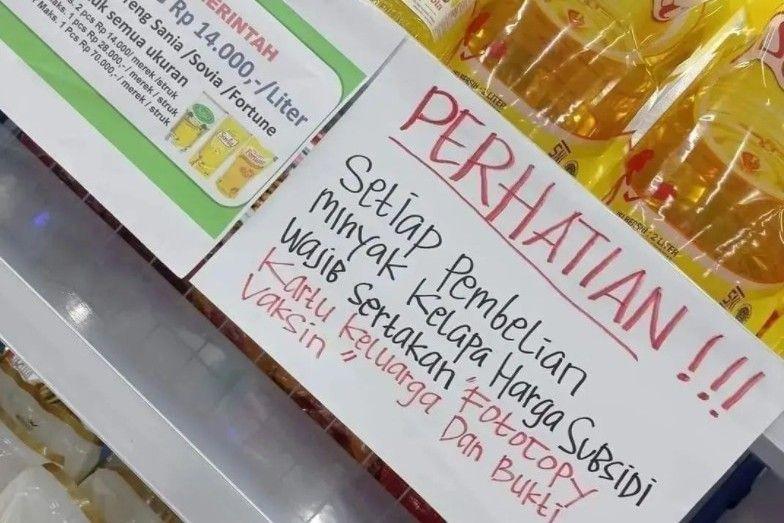 MERINTAH
reng Sania /Sovia /Fortune
Rp 14.000,-/Liter
uk semua ukuran
. 2 pcs Rp 14.000/ merek /struk
Maks. 1 pcs Rp 28.000,- / merek / struk
1 Pcs Rp 70.000,- / merek / struk
PERHATIAN !!!
Setiap Pembelian
minyak Kelapa Harga Subsidi
Wajib Sertakan "Fotocopy
Kartu Keluarga Dan Bukti
Vaksin "
2 LITER